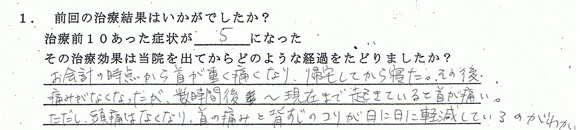 1. 前回の治療結果はいかがでしたか?
治療前10あった症状が 5 になった
その治療効果は当院を出てからどのような経過をたどりましたか?
お会計の時点から首が重く痛くなり、帰宅してから寝た。その後
痛みがなくなったが、数時間後〜現在まで起きていると首が痛い。
ただし、頭痛はなくなり、首の痛みと背すじのコリが日に日に軽減しているのがわか